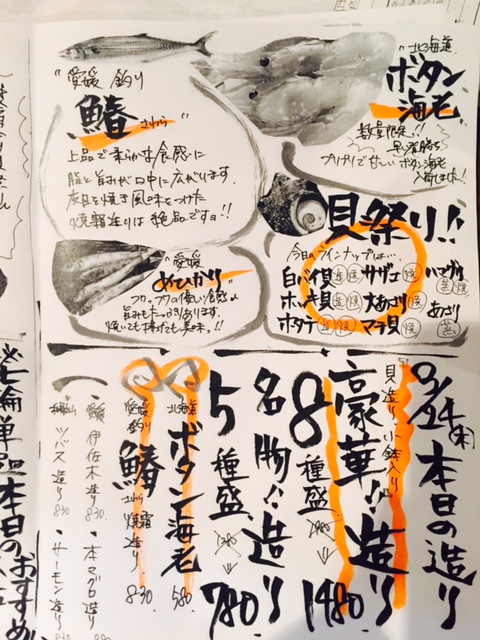 "愛媛 釣り
鰆 さわら
上品で柔らかな食感に
脂と旨みが口中に広がります。
皮目を焼き風味をつけた
焼霜造りは絶品ですョ!!
"北海道
ボタン
海老
数量限定!!
早い者勝ち
プリプリで甘〜いボタン海老
入荷しました!!
貝祭り!!
今日のラインナップは…
白バイ貝 造 焼 サザエ 造 焼 ハマグリ 蒸 焼
ホッキ貝 造 焼 大あさり 焼 あさり 蒸
ホタテ 造 焼 マテ貝 焼
"愛媛
めひかり
旨みもたっぷりあります。
焼いても揚げても美味。!!
3/24(木) 本日の造り
貝造り 小鉢入り
豪華!!造り
8種盛 1480
名物!!造り
5種盛 780
北海道 ボタン海老 580
愛媛釣り 鰆 さわら 焼霜造り 830
愛媛 伊佐木造り 830
・本マグロ造り
和歌山 ツバス造り 830
・サーモン造り
本日のおすすめ